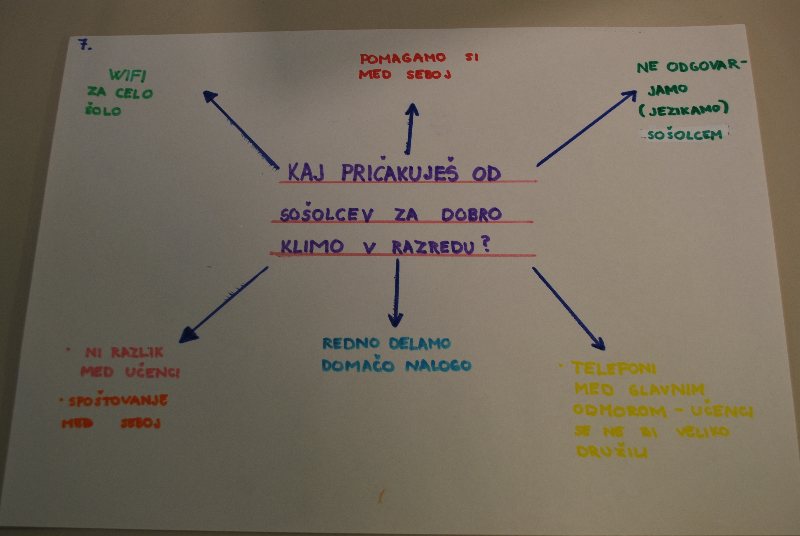 7.
WIFI
ZA CELO
ŠOLO
POMAGAMO SI
MED SEBOJ
NE ODGOVAR-
JAMO
(JEZIKAMO)
SOŠOLCEM
KAJ PRIČAKUJEŠ OD
SOŠOLCEV ZA DOBRO
KLIMO V RAZREDU?
• NI RAZLIK
MED UČENCI
• SPOŠTOVANJE
MED SEBOJ
REDNO DELAMO
DOMAČO NALOGO
• TELEFONI
MED GLAVNIM
ODMOROM - UČENCI
SE NE BI VELIKO
DRUŽILI